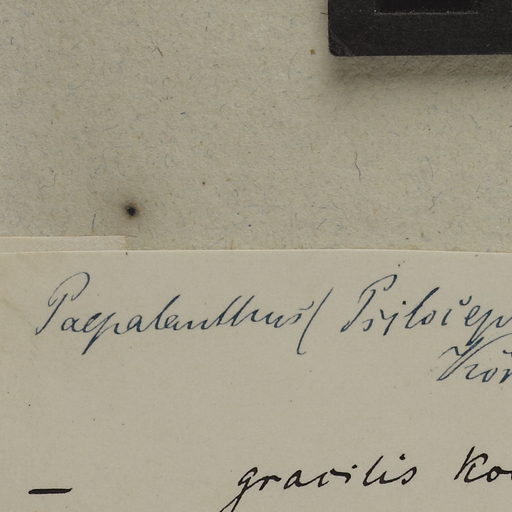 Paepalanthus (Psilocep
Kör
— gracilis Kö